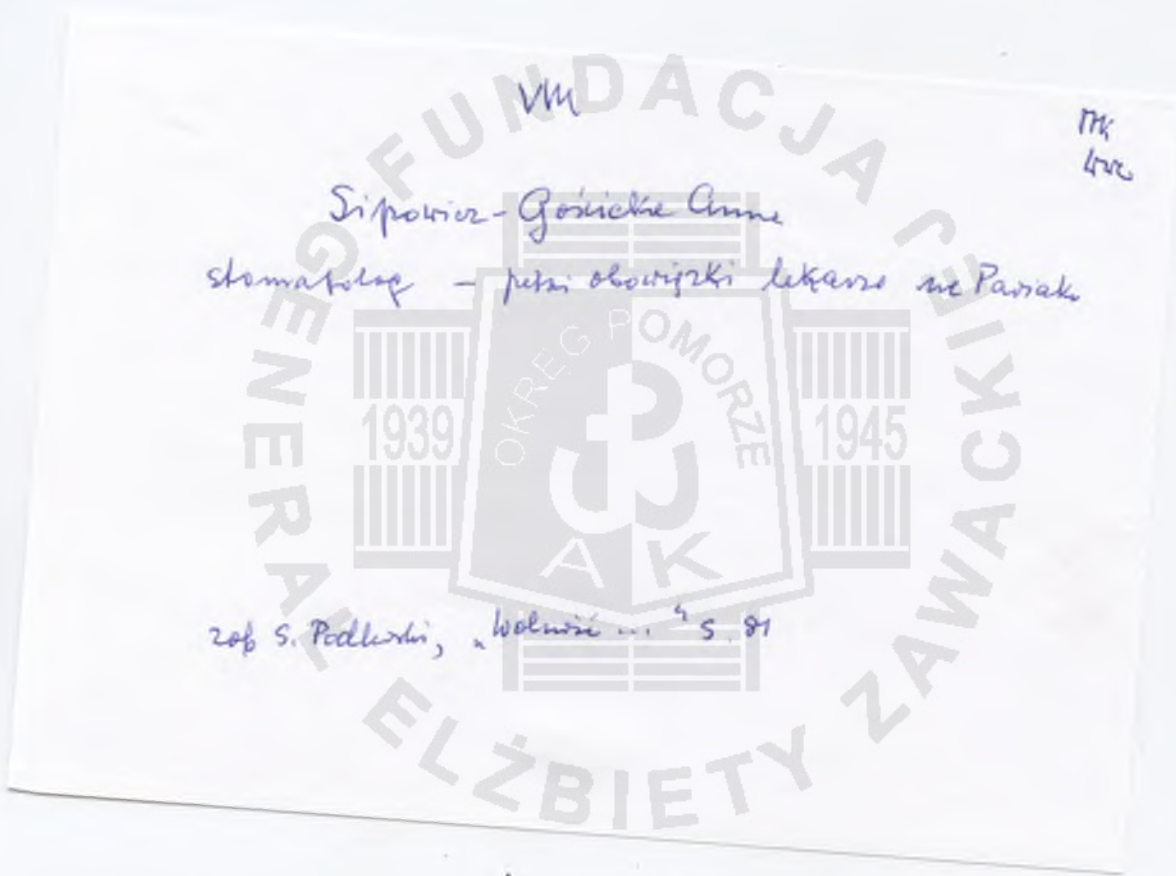 VM
Sipowicz-Gościcka Anna
stomatolog – pełni obowiązki lekarza na Pawiaku
zob S. Podlewski, „Wolność ..." s. 81
FUNDACJA GENERAŁ ELŻBIETY ZAWACKIEJ
OKRĘG POMORZE
1939
1945
AK